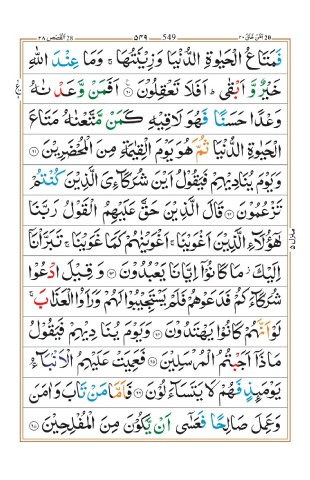 القصص ٢٨ 28 ٥٤٩ 549 امن خلق ٢٠ 20
فَمَتَاعُ الْحَيٰوةِ الدُّنْيَا وَزِيْنَتُهَا ۚ وَمَا عِنْدَ اللّٰهِ
خَيْرٌ وَّ اَبْقٰى ؕ اَفَلَا تَعْقِلُوْنَ ۟ اَفَمَنْ وَّعَدْنٰهُ
وَعْدًا حَسَنًا فَهُوَ لَاقِيْهِ كَمَنْ مَّتَّعْنٰهُ مَتَاعَ
الْحَيٰوةِ الدُّنْيَا ثُمَّ هُوَ يَوْمَ الْقِيٰمَةِ مِنَ الْمُحْضَرِيْنَ ﴿٦١﴾
وَيَوْمَ يُنَادِيْهِمْ فَيَقُوْلُ اَيْنَ شُرَكَآءِيَ الَّذِيْنَ كُنْتُمْ
تَزْعُمُوْنَ ﴿٦٢﴾ قَالَ الَّذِيْنَ حَقَّ عَلَيْهِمُ الْقَوْلُ رَبَّنَا
هٰٓؤُلَآءِ الَّذِيْنَ اَغْوَيْنَا ۚ اَغْوَيْنٰهُمْ كَمَا غَوَيْنَا ۚ تَبَرَّاْنَآ
اِلَيْكَ ؗ مَا كَانُوْٓا اِيَّانَا يَعْبُدُوْنَ ﴿٦٣﴾ وَقِيْلَ ادْعُوْا
شُرَكَآءَكُمْ فَدَعَوْهُمْ فَلَمْ يَسْتَجِيْبُوْا لَهُمْ وَرَاَوُا الْعَذَابَ ۚ
لَوْ اَنَّهُمْ كَانُوْا يَهْتَدُوْنَ ﴿٦٤﴾ وَيَوْمَ يُنَادِيْهِمْ فَيَقُوْلُ
مَاذَآ اَجَبْتُمُ الْمُرْسَلِيْنَ ﴿٦٥﴾ فَعَمِيَتْ عَلَيْهِمُ الْاَنْۢبَآءُ
يَوْمَىِٕذٍ فَهُمْ لَا يَتَسَآءَلُوْنَ ﴿٦٦﴾ فَاَمَّا مَنْ تَابَ وَاٰمَنَ
وَعَمِلَ صَالِحًا فَعَسٰٓى اَنْ يَّكُوْنَ مِنَ الْمُفْلِحِيْنَ ﴿٦٧﴾
منزل ٥